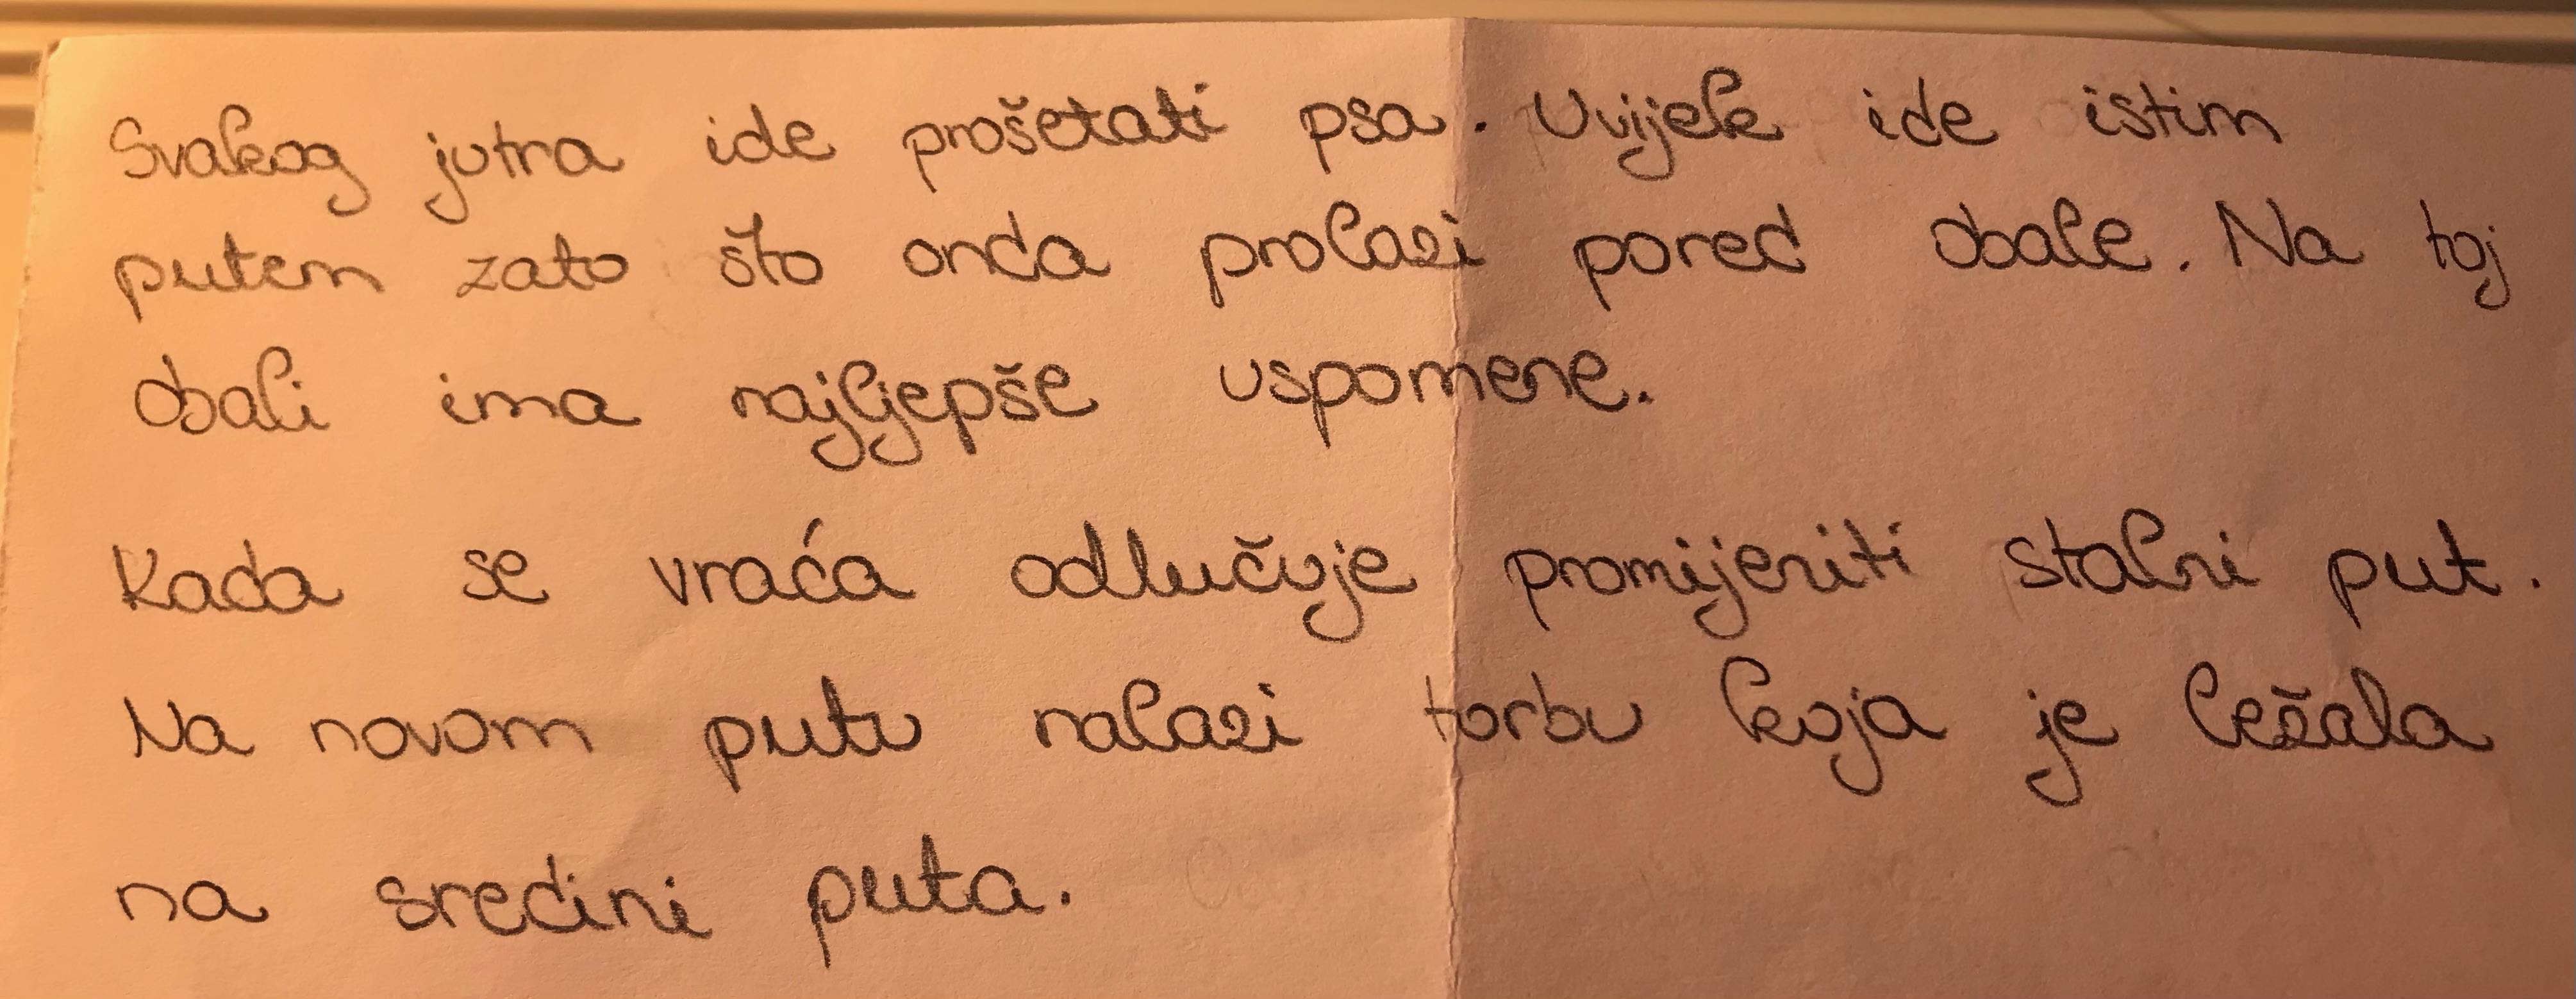 Svakog jutra ide prošetati psa. Uvijek ide istim
putem zato što onda prolazi pored obale. Na toj
obali ima najljepše uspomene.
Kada se vraća odlučuje promijeniti stalni put.
Na novom putu nalazi torbu koja je ležala
na sredini puta.